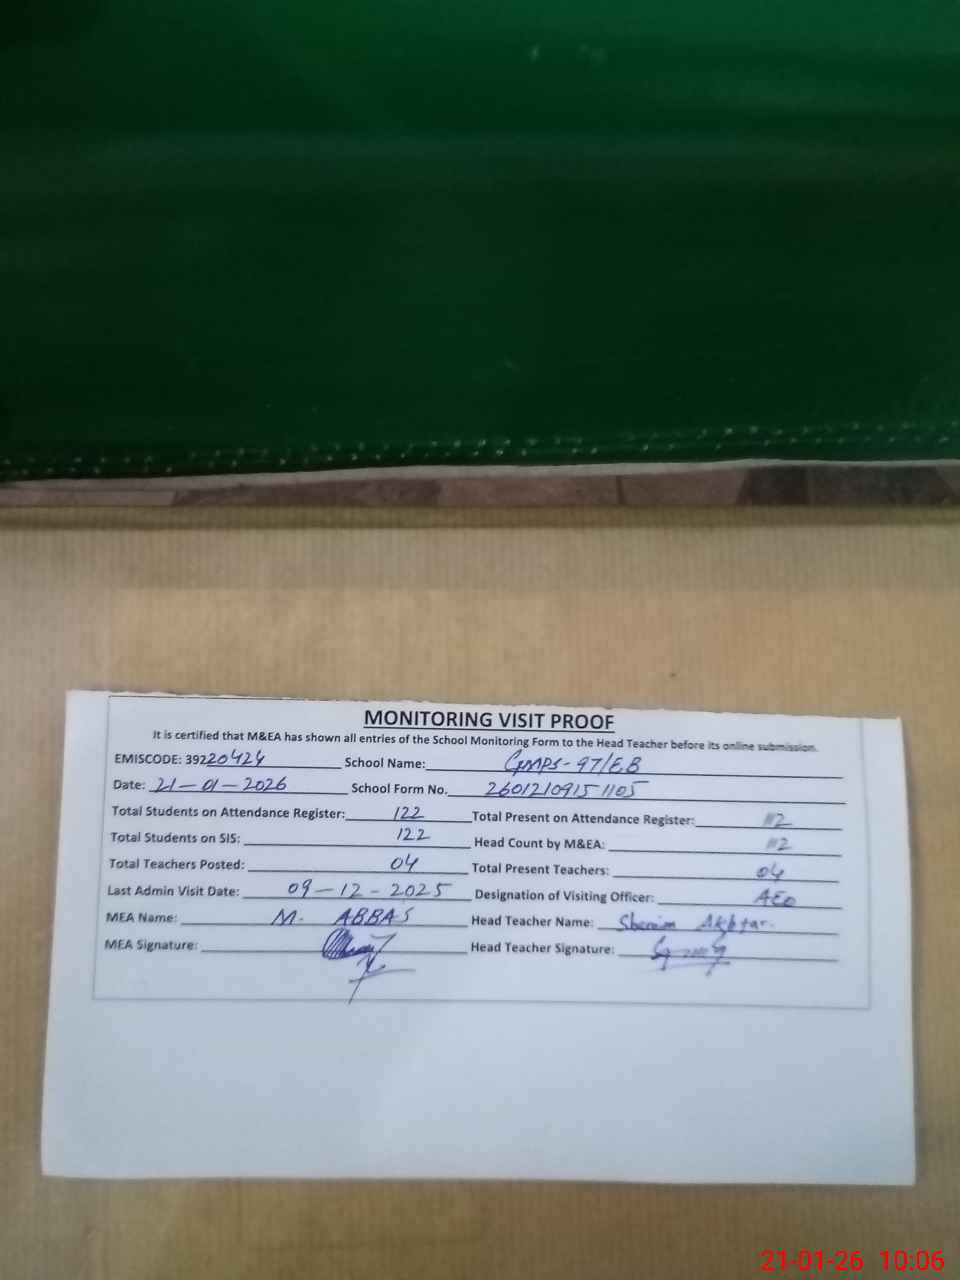 MONITORING VISIT PROOF
It is certified that M&EA has shown all entries of the School Monitoring Form to the Head Teacher before its online submission.
EMISCODE: 39220424 School Name: GMPS-97/EB
Date: 21-01-2026 School Form No. 26012109151105
Total Students on Attendance Register: 122 Total Present on Attendance Register: 112
Total Students on SIS: 122 Head Count by M&EA: 112
Total Teachers Posted: 04 Total Present Teachers: 04
Last Admin Visit Date: 09-12-2025 Designation of Visiting Officer: AEO
MEA Name: M. ABBAS Head Teacher Name: Akhtar.
MEA Signature: Head Teacher Signature:
21-01-26 10:06